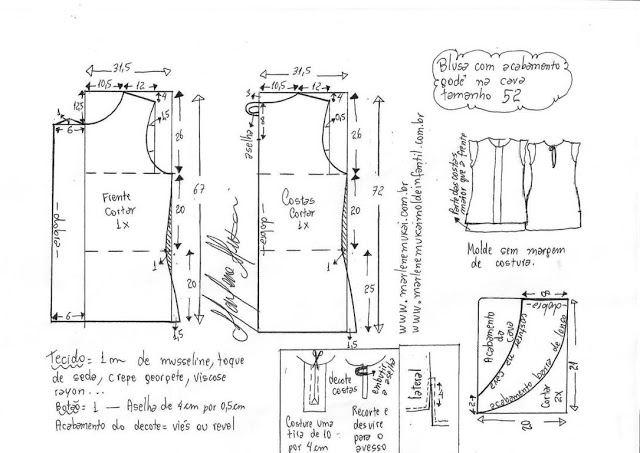 31,5
10,5
12
12,5
1
6
4
1,5
26
67
Frente
Cortar
1x
20
-dobra-
1
20
6
1,5
31,5
10,5
12
3
8
aselha
4
0,5
26
72
Costas
Cortar
1x
20
-dobra-
1
25
1,5
www.marlenemukai.com.br
www.marlenemukaimoldeinfantil.com.br
Blusa com acabamento
godê na cava
tamanho 52
Parte das costas
maior que a frente
Molde sem margem
de costura.
8
-dobra-
Acabamento
da
Cava
costurar
acabamento barra de lenço
Cortar
2x
21
2
20
Tecido = 1 m de musseline, toque
de seda, crepe georgete, viscose
rayon...
Botão = 1 — Aselha de 4 cm por 0,5 cm
Acabamento do decote = viés ou revel
decote
costas
embutir
a aselha
Costure uma
tira de 10
por 4 cm
Recorte e
desvire
para o
avesso
lateral